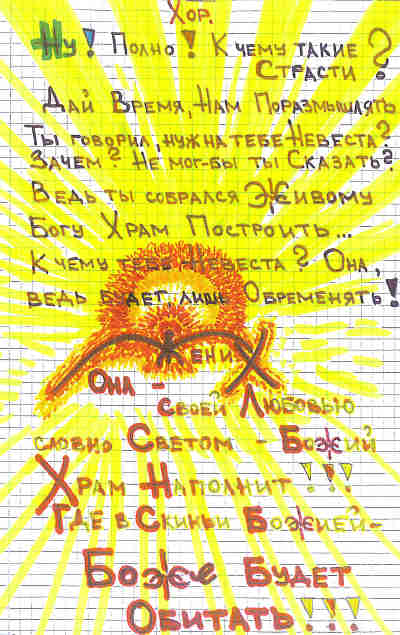 Хор.
Ну! Полно! К чему такие
Страсти?
Дай Время, Нам Поразмышлять
Ты говорил, нужна тебе Невеста?
Зачем? Не мог-бы ты Сказать?
Ведь ты собрался Живому
Богу Храм Построить...
К чему тебе Невеста? Она,
ведь будет лишь Обременять!
Жених
Она -
своей Любовью
словно Светом - Божий
Храм Наполнит!!!
Где в Скиньи Божией-
Боже Будет
Обитать!!!